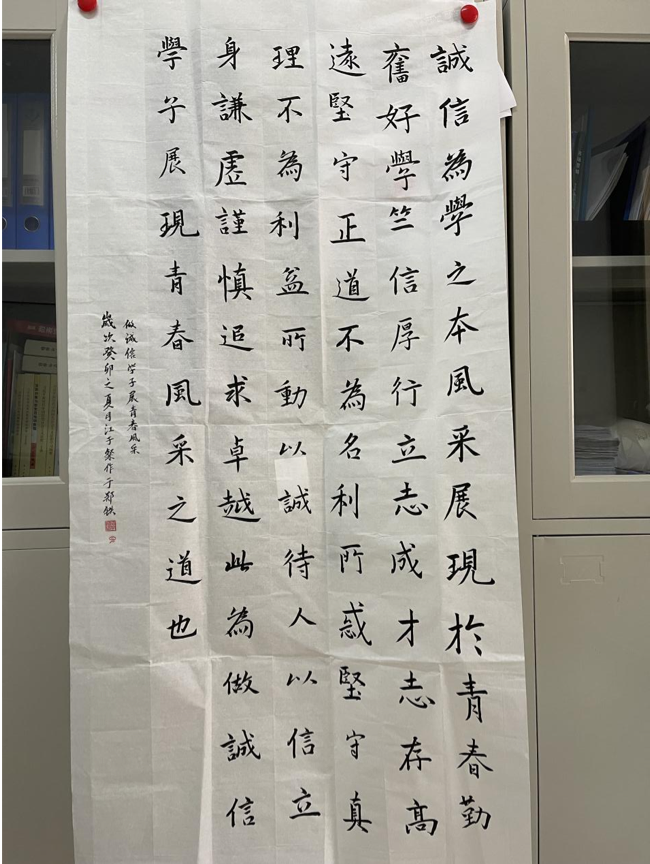 誠信為學之本風采展現於青春勤
奮好學竺信厚行立志成才志存高
遠堅守正道不為名利所惑堅守真
理不為利益所動以誠待人以信立
身謙虛謹慎追求卓越此為做誠信
學子展現青春風采之道也
做诚信学子展青春风采
歲次癸卯之夏月江子作于郑铁